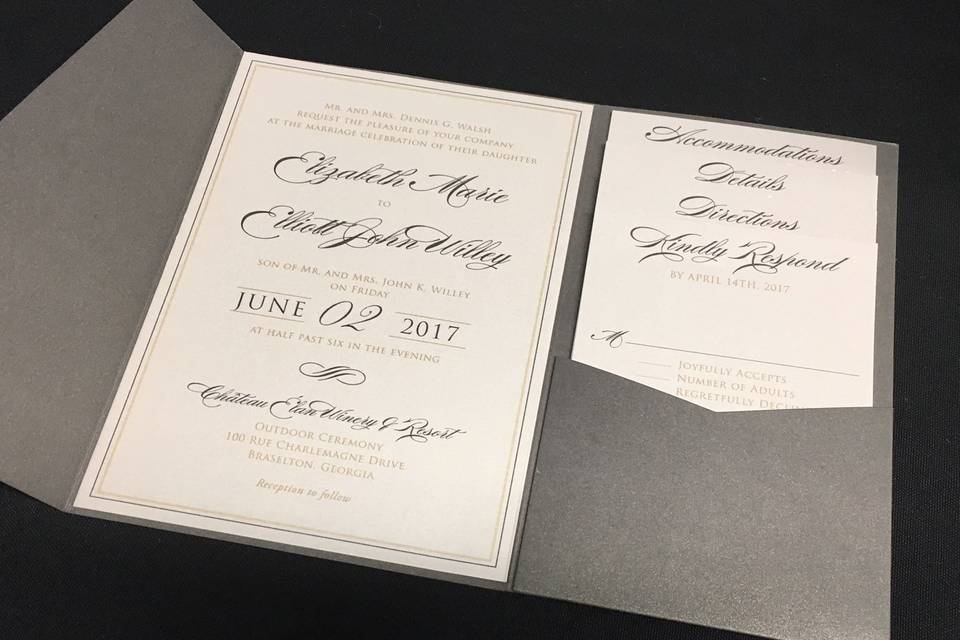 Mr. and Mrs. Dennis G. Walsh
request the pleasure of your company
at the marriage celebration of their daughter
Elizabeth Marie
to
Elliott John Willey
son of Mr. and Mrs. John K. Willey
on Friday
JUNE 02 2017
at half past six in the evening
Château Élan Winery & Resort
Outdoor Ceremony
100 Rue Charlemagne Drive
Braselton, Georgia
Reception to follow
Accommodations
Details
Directions
Kindly Respond
by April 14th, 2017
M
Joyfully Accepts
Number of Adults
Regretfully